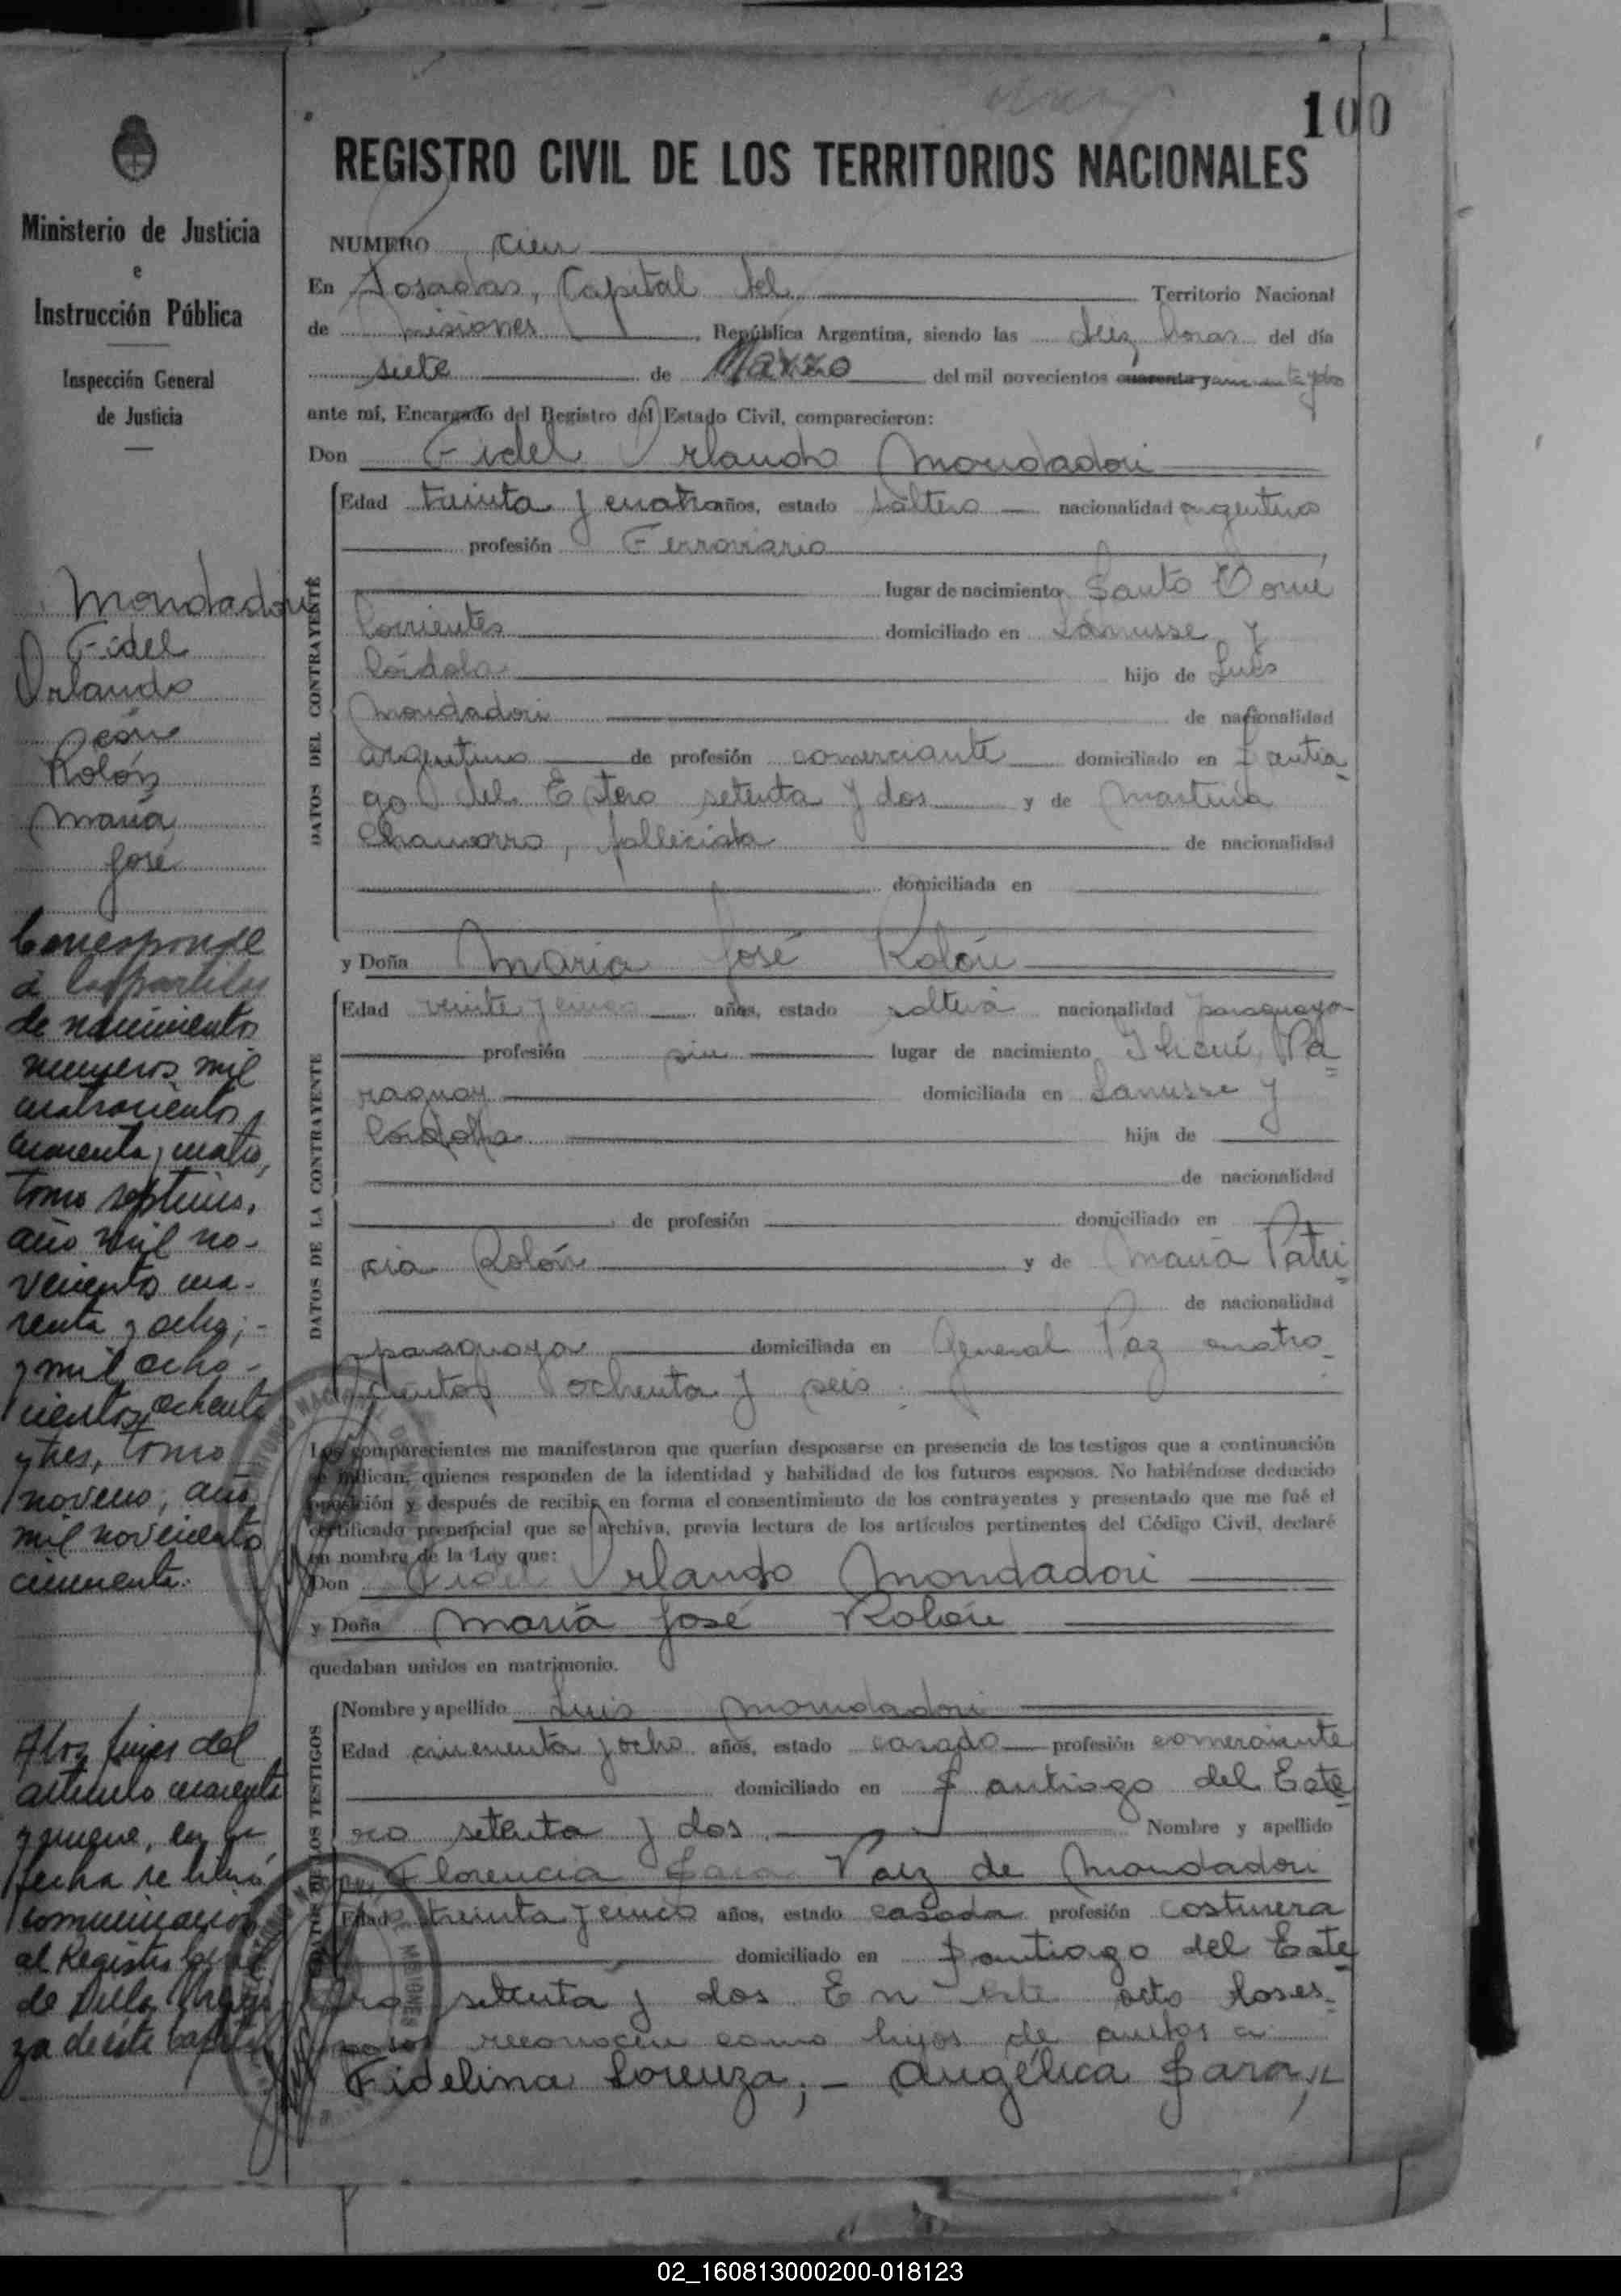 100
REGISTRO CIVIL DE LOS TERRITORIOS NACIONALES
Ministerio de Justicia
e
Instrucción Pública
Inspección General
de Justicia
NUMERO cien
En Posadas, Capital del Territorio Nacional
de Misiones, República Argentina, siendo las diez horas del día
siete de Marzo del mil novecientos cuarenta y
ante mí, Encargado del Registro del Estado Civil, comparecieron:
Don Fidel Orlando Mondadori
DATOS DEL CONTRAYENTE
Edad treinta y cuatro años, estado soltero nacionalidad argentino
profesión Ferroviario
lugar de nacimiento Santo Tomé
Corrientes domiciliado en Lanusse y
Córdoba hijo de Luis
Mondadori de nacionalidad
argentino de profesión comerciante domiciliado en Santia-
go del Estero setenta y dos y de Martina
Chamorro, fallecida de nacionalidad
domiciliada en
y Doña María José Rolón
DATOS DE LA CONTRAYENTE
Edad veinte y cinco años, estado soltera nacionalidad paraguaya
profesión sin lugar de nacimiento Jhauí, Pa=
raguay domiciliada en Lanusse y
Córdoba hija de
de nacionalidad
de profesión domiciliado en
cia Rolón y de María Patri-
de nacionalidad
paraguaya domiciliada en General Paz cuatro-
cientos ochenta y seis.
Los comparecientes me manifestaron que querían desposarse en presencia de los testigos que a continuación
se indican, quienes responden de la identidad y habilidad de los futuros esposos. No habiéndose deducido
oposición y después de recibir en forma el consentimiento de los contrayentes y presentado que me fué el
certificado prenupcial que se archiva, previa lectura de los artículos pertinentes del Código Civil, declaré
en nombre de la Ley que:
Don Fidel Orlando Mondadori
y Doña María José Rolón
quedaban unidos en matrimonio.
DATOS DE LOS TESTIGOS
Nombre y apellido Luis Mondadori
Edad cincuenta y ocho años, estado casado profesión comerciante
domiciliado en Santiago del Este-
ro setenta y dos. Nombre y apellido
Florencia Sara Paiz de Mondadori
Edad treinta y cinco años, estado casada profesión costurera
domiciliado en Santiago del Este-
ro setenta y dos En este acto los es-
posos reconocen como hijos de ambos a
Fidelina Lorenza; - Angélica Sara,
Mondadori
Fidel
Orlando
con
Rolón
María
José
Corresponde
a las partidas
de nacimientos
números mil
cuatrocientos
cuarenta y cuatro,
tomo séptimo,
año mil no-
veciento cua-
renta y ocho;-
y mil ocho-
cientos ochenta
y tres, tomo
noveno, año
mil noveciento
cincuenta.
A los fines del
artículo cuarenta
y nueve, en la
fecha se libró
comunicación
al Registro Civil
de
za de éste
02_160813000200-018123